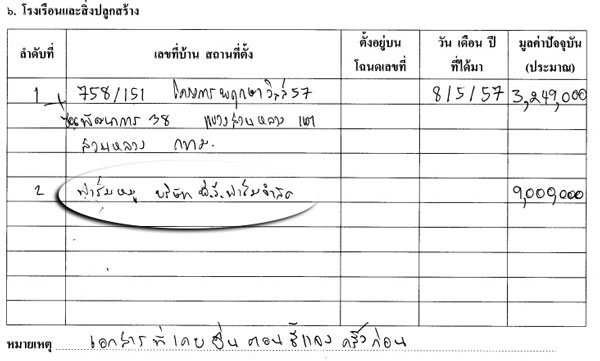 ๖. โรงเรือนและสิ่งปลูกสร้าง
ลำดับที่ เลขที่บ้าน สถานที่ตั้ง ตั้งอยู่บนโฉนดเลขที่ วัน เดือน ปี ที่ได้มา มูลค่าปัจจุบัน (ประมาณ)
1 758/151 โครงการพฤกษาวิลล์ 57 8/5/57 3,249,000
ซ.พัฒนาการ 38 แขวงสวนหลวง เขต
สวนหลวง กทม.
2 ฟาร์มหมู บริษัท พี.วี.ฟาร์มจำกัด 9,000,000
หมายเหตุ เอกสารที่เคยยื่น ตอนชี้แจง ครั้งก่อน